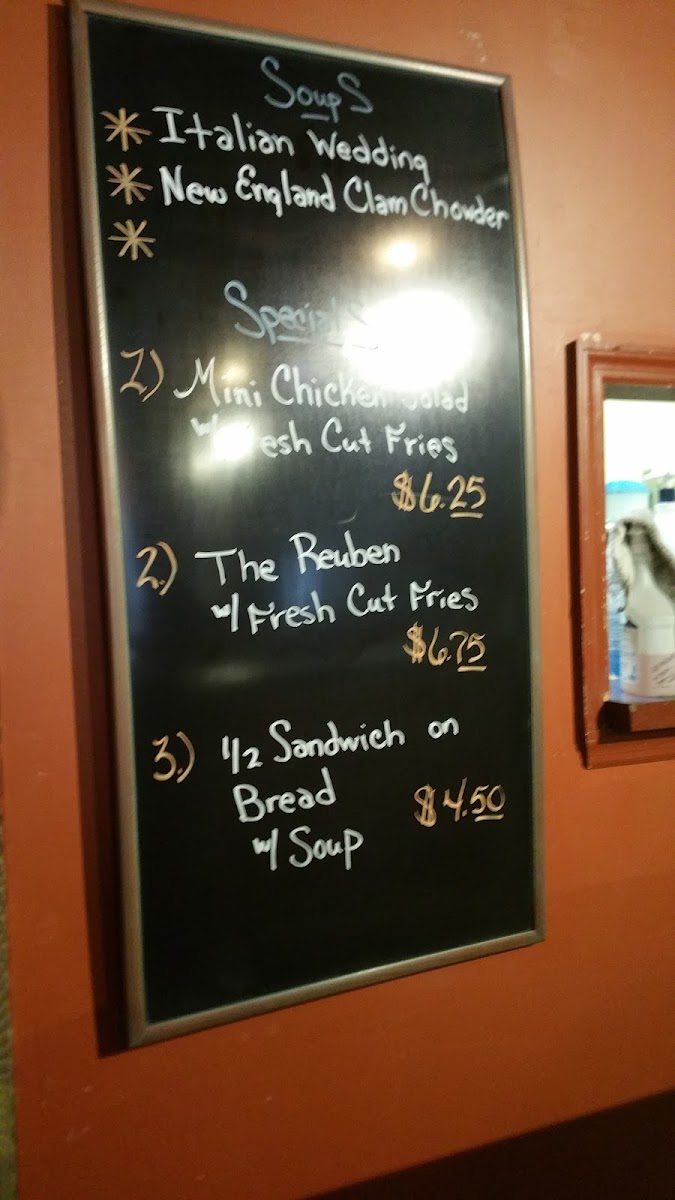 Soups
* Italian Wedding
* New England Clam Chowder
*
Specials
1.) Mini Chicken Salad
w/ Fresh Cut Fries
$6.25
2.) The Reuben
w/ Fresh Cut Fries
$6.75
3.) 1/2 Sandwich on
Bread $4.50
w/ Soup